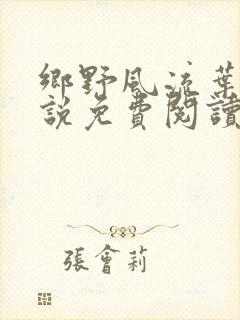 鄉野風流葉
說免費閱讀
張會莉